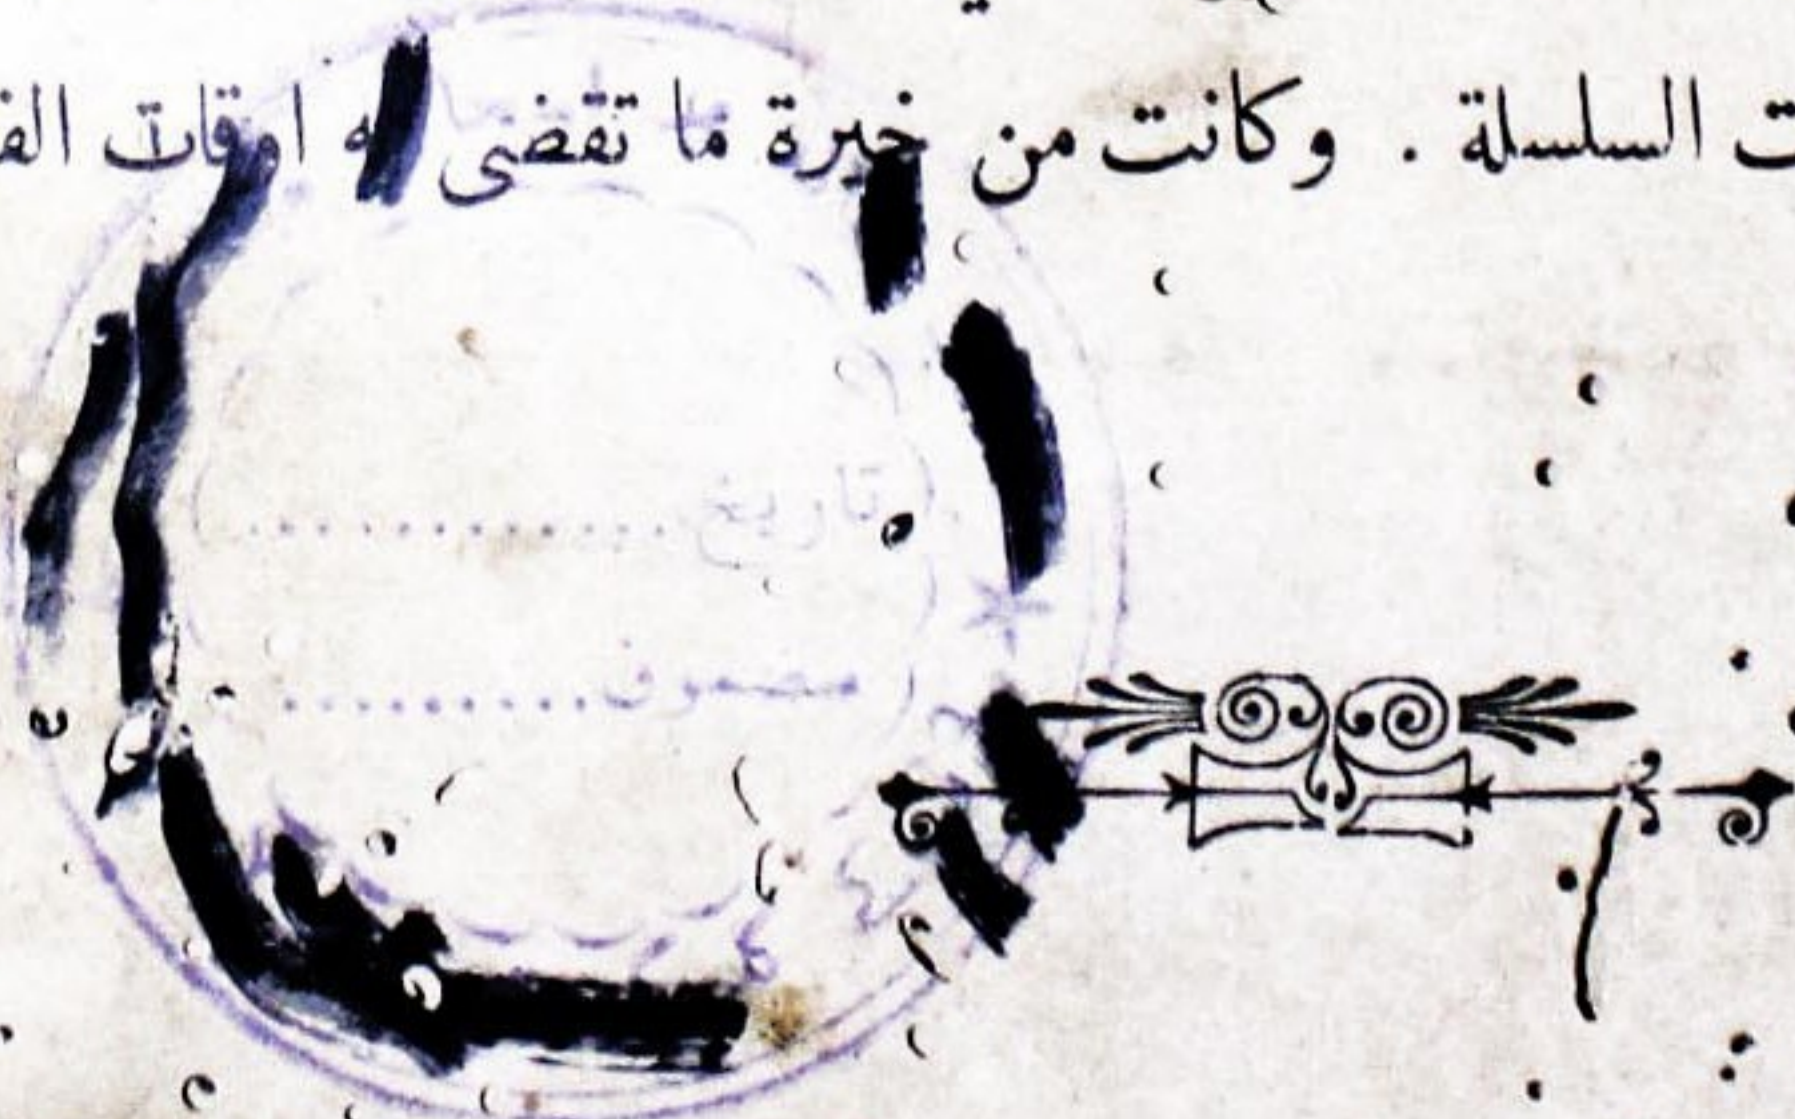 السلسلة . وكانت من خيرة ما تقضى به اوقات
تاريخ